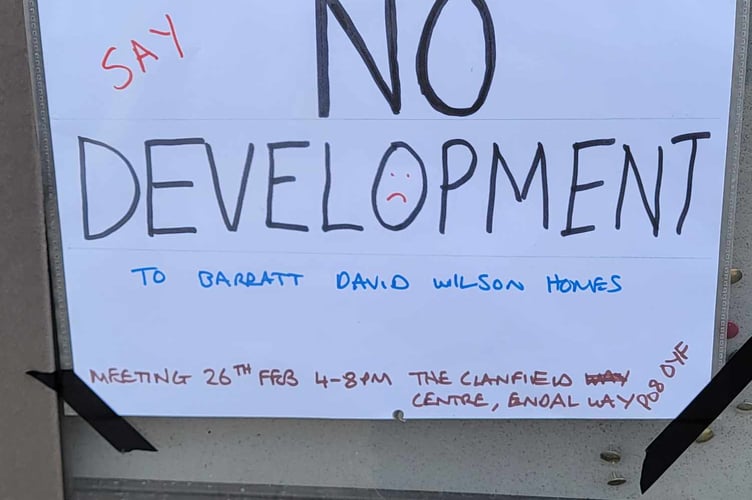 SAY
NO
DEVELOPMENT
TO BARRATT DAVID WILSON HOMES
MEETING 26TH FEB 4-8PM THE CLANFIELD WAY
CENTRE, ENDAL WAY PO8 0YF